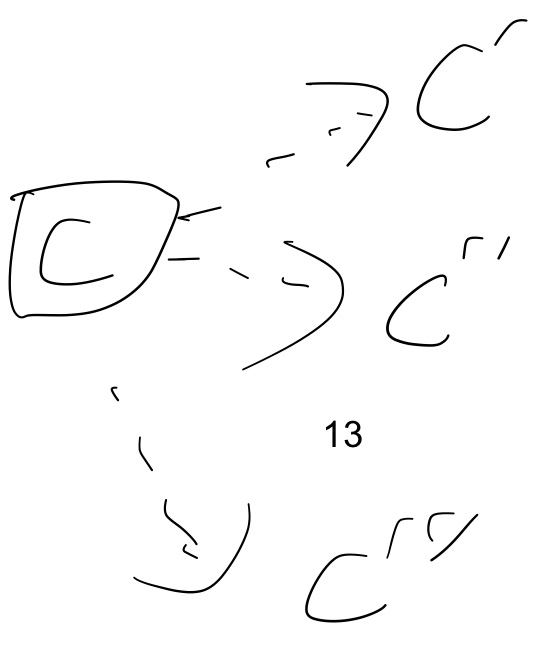 C'
C
C''
13
C'''